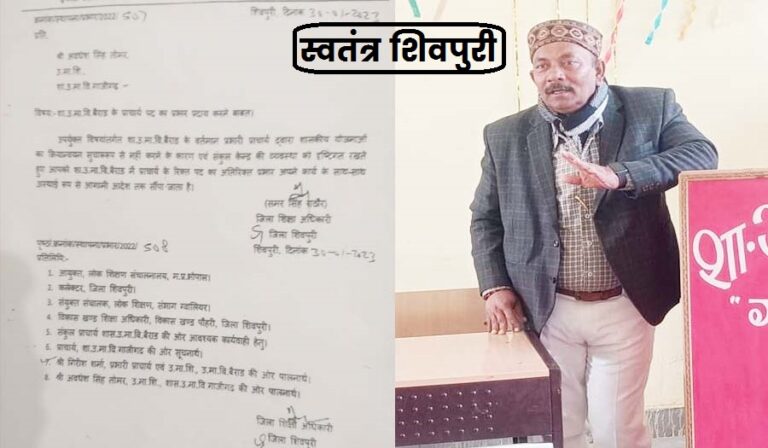 क्रमांक/स्थापना/प्रभार/2022/ 507 शिवपुरी, दिनांक 30-01-2023
प्रति,
श्री अवधेश सिंह तोमर,
उ.मा.शि.,
शा.उ.मा.वि. गाजीगढ़
विषय:- शा.उ.मा.वि.बैराड के प्राचार्य पद का प्रभार प्रदाय करने बाबत।
उपर्युक्त विषयांतर्गत शा.उ.मा.वि.बैराड के वर्तमान प्रभारी प्राचार्य द्वारा शासकीय योजनाओं
का क्रियान्वयन सुचारूरूप से नहीं करने के कारण एवं संकुल केन्द्र की व्यवस्था को दृष्टिगत रखते
हुए आपको शा.उ.मा.वि.बैराड में प्राचार्य के रिक्त पद का अतिरिक्त प्रभार अपने कार्य के साथ-साथ
अस्थाई रूप से आगामी आदेश तक सौंपा जाता है।
(समर सिंह राठौर)
जिला शिक्षा अधिकारी
जिला शिवपुरी
पृष्ठां.क्रमांक/स्थापना/प्रभार/2022/ 508 शिवपुरी, दिनांक 30-01-2023
प्रतिलिपि:-
1. आयुक्त, लोक शिक्षण संचालनालय, म.प्र.भोपाल।
2. कलेक्टर, जिला शिवपुरी।
3. संयुक्त संचालक, लोक शिक्षण, संभाग ग्वालियर।
4. विकास खण्ड शिक्षा अधिकारी, विकास खण्ड पोहरी, जिला शिवपुरी।
5. संकुल प्राचार्य शास.उ.मा.वि.बैराड की ओर आवश्यक कार्यवाही हेतु।
6. प्राचार्य, शा.उ.मा.वि गाजीगढ की ओर सूचनार्थ।
7. श्री गिरीश शर्मा, प्रभारी प्राचार्य एवं उ.मा.शि., उ.मा.वि.बैराड की ओर पालनार्थ।
8. श्री अवधेश सिंह तोमर, उ.मा.शि., शास.उ.मा.वि गाजीगढ की ओर पालनार्थ।
जिला शिक्षा अधिकारी
जिला शिवपुरी
स्वतंत्र शिवपुरी
शा.उ
"ग